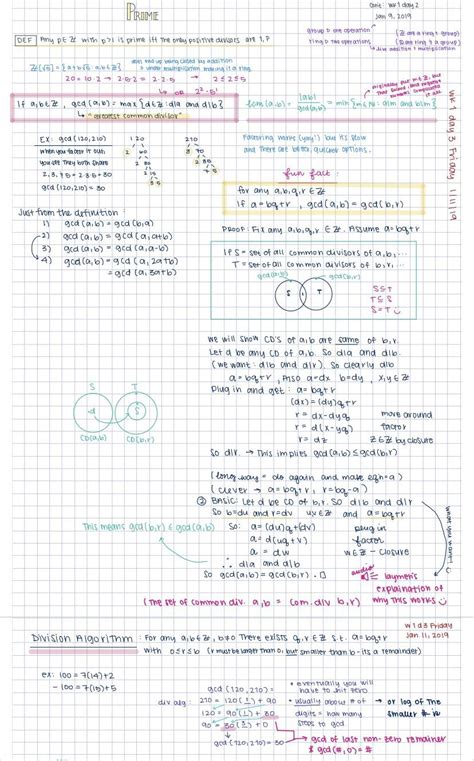 PRIME
unit: wk 1 day 2
Jan 9, 2019
DEF Any p ∈ ℤ with p>1 is prime iff the only positive divisors are 1, p
group → one operation
ring → two operations
If a,b ∈ ℤ, gcd(a,b) = max{d ∈ ℤ : d|a and d|b}
↳ "greatest common divisor"
wk 1 day 3 Friday 1/11/19
EX: gcd(120, 210)
when you factor it out,
you see they both share
2·3·5 = 30
gcd(120, 210) = 30
Factoring works (yay!) but it's slow
and there are better, quicker options.
fun fact:
for any a,b,q,r ∈ ℤ
If a = bq+r, gcd(a,b) = gcd(b,r)
Just from the definition:
1) gcd(a,b) = gcd(b,a)
2) gcd(a,b) = gcd(a,a+b)
3) gcd(a,b) = gcd(a,a-b)
4) gcd(a,b) = gcd(a, 2a+b)
= gcd(a, 3a+b)
PROOF: Fix any a,b,q,r ∈ ℤ. Assume a=bq+r
If S = set of all common divisors of a,b,...
T = set of all common divisors of b,r,...
gcd(a,b) gcd(b,r)
S T
S⊆T
T⊆S
S=T
We will show CD's of a,b are same of b,r.
Let d be any CD of a,b. So d|a and d|b.
(we want: d|b and d|r). So clearly d|b
a=bq+r, Also a=dx b=dy, x,y∈ℤ
Plug in and get: a=bq+r
(dx) = (dy)q+r
r = dx-dyq move around
r = d(x-yq) factor
r = dz z∈ℤ by closure
So d|r. → This implies gcd(a,b) ≤ gcd(b,r)
S T
d S
CD(a,b) CD(b,r)
(long way = do again and make eqn=a)
(clever → a=bq+r, r=bq-a)
② BASIC: Let d be CD of b,r. So d|b and d|r
So b=du and r=dv u,v∈ℤ and a=bq+r
This means gcd(b,r) ≤ gcd(a,b)
So: a=(du)q+(dv) plug in
a=d(uq+v) factor
a = dw w∈ℤ - closure
∴ d|a and d|b
So gcd(a,b) = gcd(b,r). □
what you want!!
audio
laymen's
explaination of
why this works
(The set of common div. a,b = com. div b,r)
w 1 d 3 Friday
Jan 11, 2019
Division Algorithm: For any a,b∈ℤ, b≠0 There exists q,r∈ℤ s.t. a=bq+r
with 0≤r≤b (r must be larger than 0, but smaller than b - its a remainder)
ex: 100 = 7(14)+2
-100 = 7(15)+5
gcd(120, 210) =
div alg: 210 = 120(1)+90
120 = 90(1)+30
90 = 30(3)+0
gcd(120, 210) = 30
• eventually you will
have to hit zero
• usually about # of → or log of the
digits = how many smaller #
steps to gcd
→ gcd of last non-zero remainer
& gcd(#, 0) = #